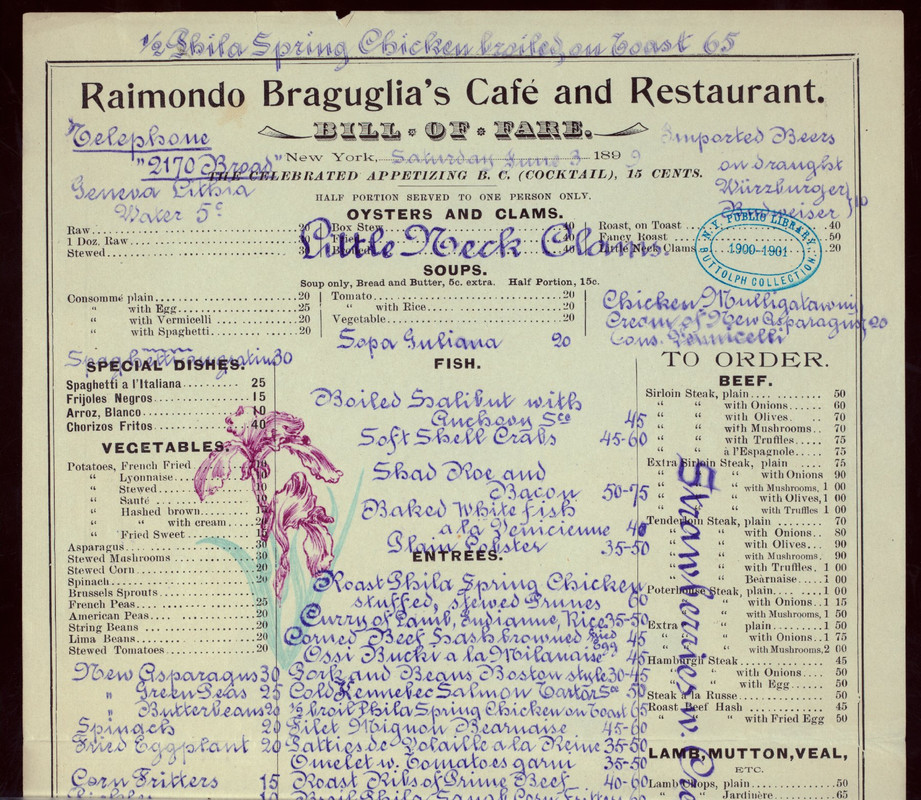 1/2 Phila Spring Chicken broiled on Toast 65
Raimondo Braguglia's Café and Restaurant.
BILL OF FARE.
Telephone
"2170 Broad"
Geneva Lithia
Water 5c
Imported Beers
on draught
Würzburger
Budweiser } 10
New York, Saturday June 3 1899
THE CELEBRATED APPETIZING B. C. (COCKTAIL), 15 CENTS.
HALF PORTION SERVED TO ONE PERSON ONLY.
OYSTERS AND CLAMS.
Little Neck Clams.
Raw 20
1 Doz. Raw
Stewed
Box Stew 40
Roast, on Toast 40
Fancy Roast 50
Little Neck Clams 20
N.Y. PUBLIC LIBRARY
1900-1901
BUTTOLPH COLLECTION
SOUPS.
Soup only, Bread and Butter, 5c. extra. Half Portion, 15c.
Consommé plain 20
" with Egg 25
" with Vermicelli 20
" with Spaghetti 20
Tomato 20
" with Rice 20
Vegetable 20
Sopa Guliana 20
Chicken Mulligatawny
Cream of New Asparagus } 20
Cons. Vermicelli
Spaghetti au gratin 30
SPECIAL DISHES.
Spaghetti a l'Italiana 25
Frijoles Negros 15
Arroz, Blanco 10
Chorizos Fritos 40
VEGETABLES.
Potatoes, French Fried
" Lyonnaise
" Stewed
" Sauté
" Hashed brown
" " with cream
" Fried Sweet
Asparagus 30
Stewed Mushrooms 20
Stewed Corn 20
Spinach 20
Brussels Sprouts
French Peas 25
American Peas 20
String Beans 20
Lima Beans 20
Stewed Tomatoes 20
New Asparagus 30
" Green Peas 25
" Butterbeans 20
Spinach 20
Fried Eggplant 20
Corn Fritters 15
FISH.
Boiled Halibut with
Anchovy Sce 45
Soft Shell Crabs 45-60
Shad Roe and
Bacon 50-75
Baked White fish
a la Venicienne 40
Plain Lobster 35-50
ENTREES.
Roast Phila Spring Chicken
stuffed, stewed Prunes 60
Curry of Lamb, Indianne, Rice 35-50
Corned Beef Hash browned fried Egg 45
Ossi Bucki a la Milanaise 45
Pork and Beans Boston style 30-45
Cold Kennebec Salmon Tartar Sce 50
1/2 broil Phila Spring Chicken on Toast 65
Filet Mignon Bearnaise 45-60
Patties de Volaille a la Reine 35-50
Omelet w. Tomatoes garni 35-50
Roast Ribs of Prime Beef 40-60
TO ORDER.
BEEF.
Sirloin Steak, plain 50
" " with Onions 60
" " with Olives 70
" " with Mushrooms 70
" " with Truffles 75
" " à l'Espagnole 75
Extra Sirloin Steak, plain 75
" " with Onions 90
" " with Mushrooms, 1 00
" " with Olives, 1 00
" " with Truffles 1 00
Tenderloin Steak, plain 70
" " with Onions 80
" " with Olives 90
" " with Mushrooms 90
" " with Truffles 1 00
" " Bearnaise 1 00
Poterhouse Steak, plain 1 00
" " with Onions 1 15
" " with Mushrooms, 1 50
Extra " plain 1 50
" " with Onions 1 75
" " with Mushrooms, 2 00
Hamburgh Steak 45
" " with Onions 50
" " with Egg 50
Steak a la Russe 50
Roast Beef Hash 45
" " with Fried Egg 50
LAMB, MUTTON, VEAL,
ETC.
Lamb Chops, plain 50
" Jardinère 65
Strawberries w.